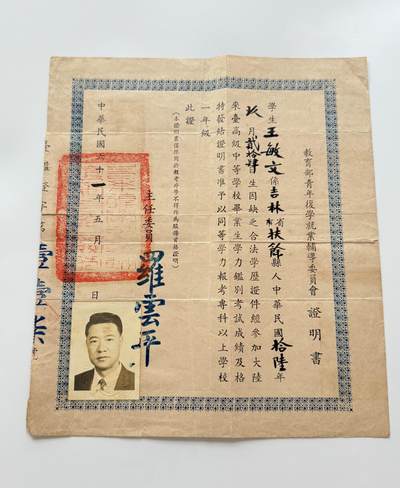 教育部青年復學就業輔導委員會 證明書
學生王敏文係吉林省扶餘縣人中華民國拾陸年
玖月貳拾肆日生因缺乏合法學歷證件經參加大陸
來臺高級中等學校畢業生學力鑑別考試成績及格
特發給證明書准予以同等學力報考專科以上學校
一年級
此證
(本證明書僅供同於報考升學不得作為服務資格證明)
主任委員 羅雲平
中華民國六十一年五月 日